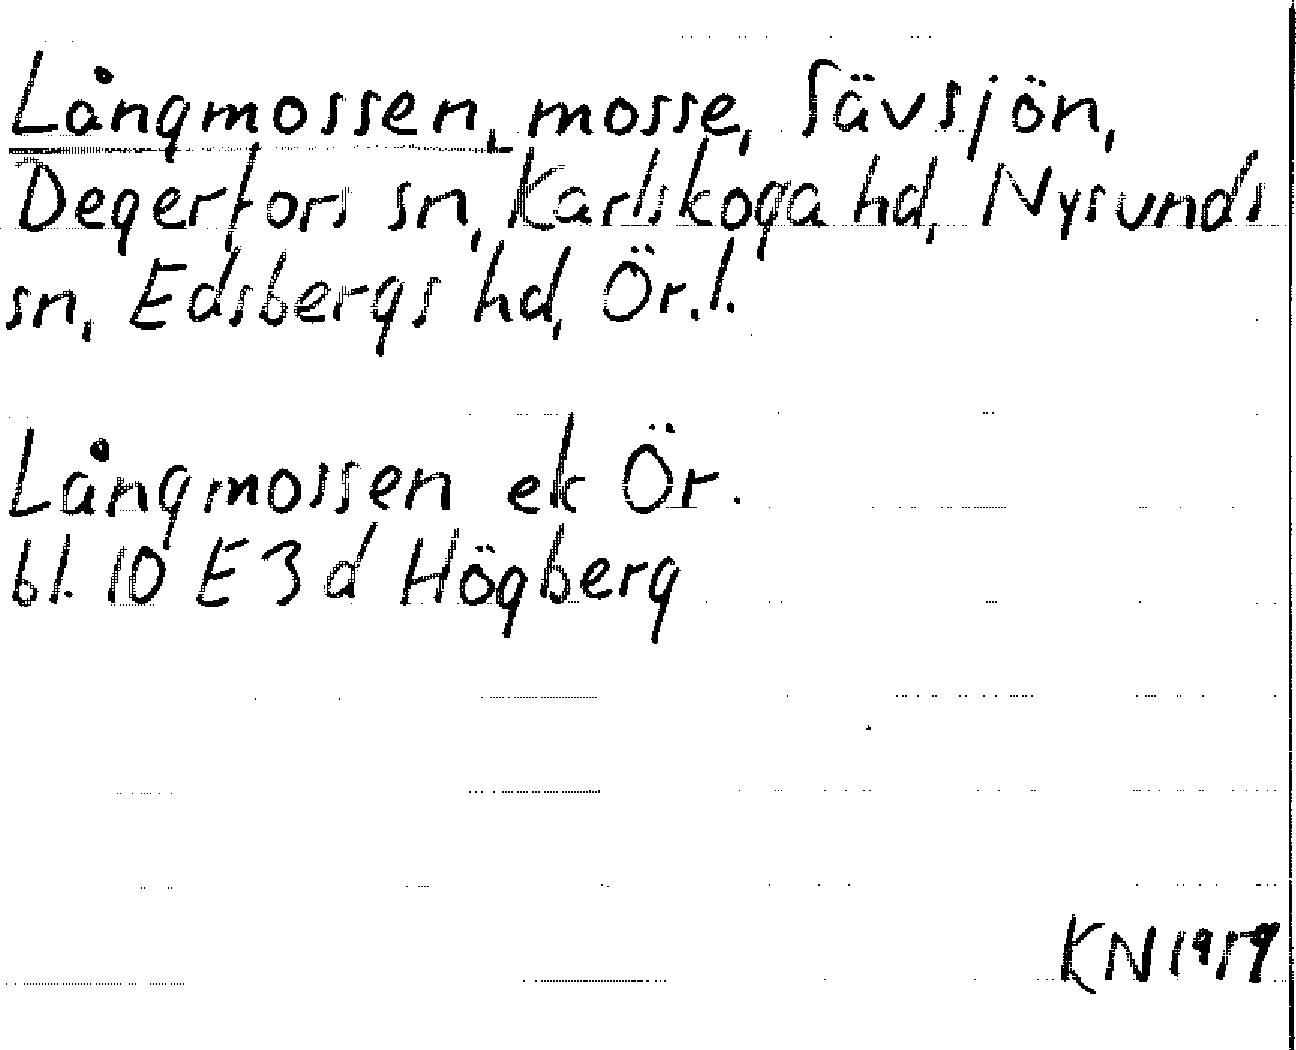 Långmossen, mosse, Sävsjön,
Degerfors sn, Karlskoga hd, Nysunds
sn, Edsbergs hd, Ör. l.
Långmossen ek Ör.
bl. 10 E 3 d Högberg
KN 1959